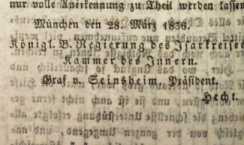 nur volle Anerkennung zu Theil werden lassen
München den 28. März 1836.
Königl. B. Regierung des Isarkreises
Kammer des Innern.
Graf v. Seinsheim, Präsident.
Hecht.